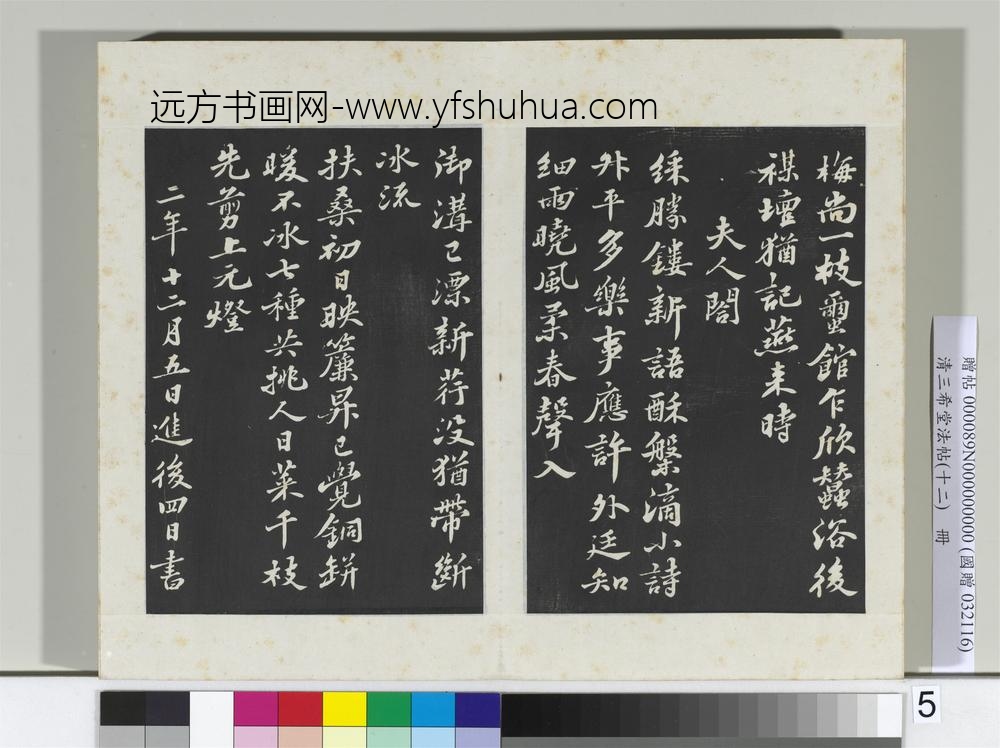 远方书画网-www.yfshuhua.com
梅尚一枝蠶館乍欣蠶浴後
禖壇猶記燕来時
夫人閤
綵勝鏤新語酥槃滴小詩
升平多樂事應許外廷知
細雨曉風柔春聲入
御溝已漂新荇没猶帶斷
冰流
扶桑初日映簾昇已覺銅缾
暖不冰七種共挑人日菜千枝
先剪上元燈
二年十二月五日進後四日書
贈帖 0000089N000000000 (國贈 032116)
清三希堂法帖(十二) 冊
5